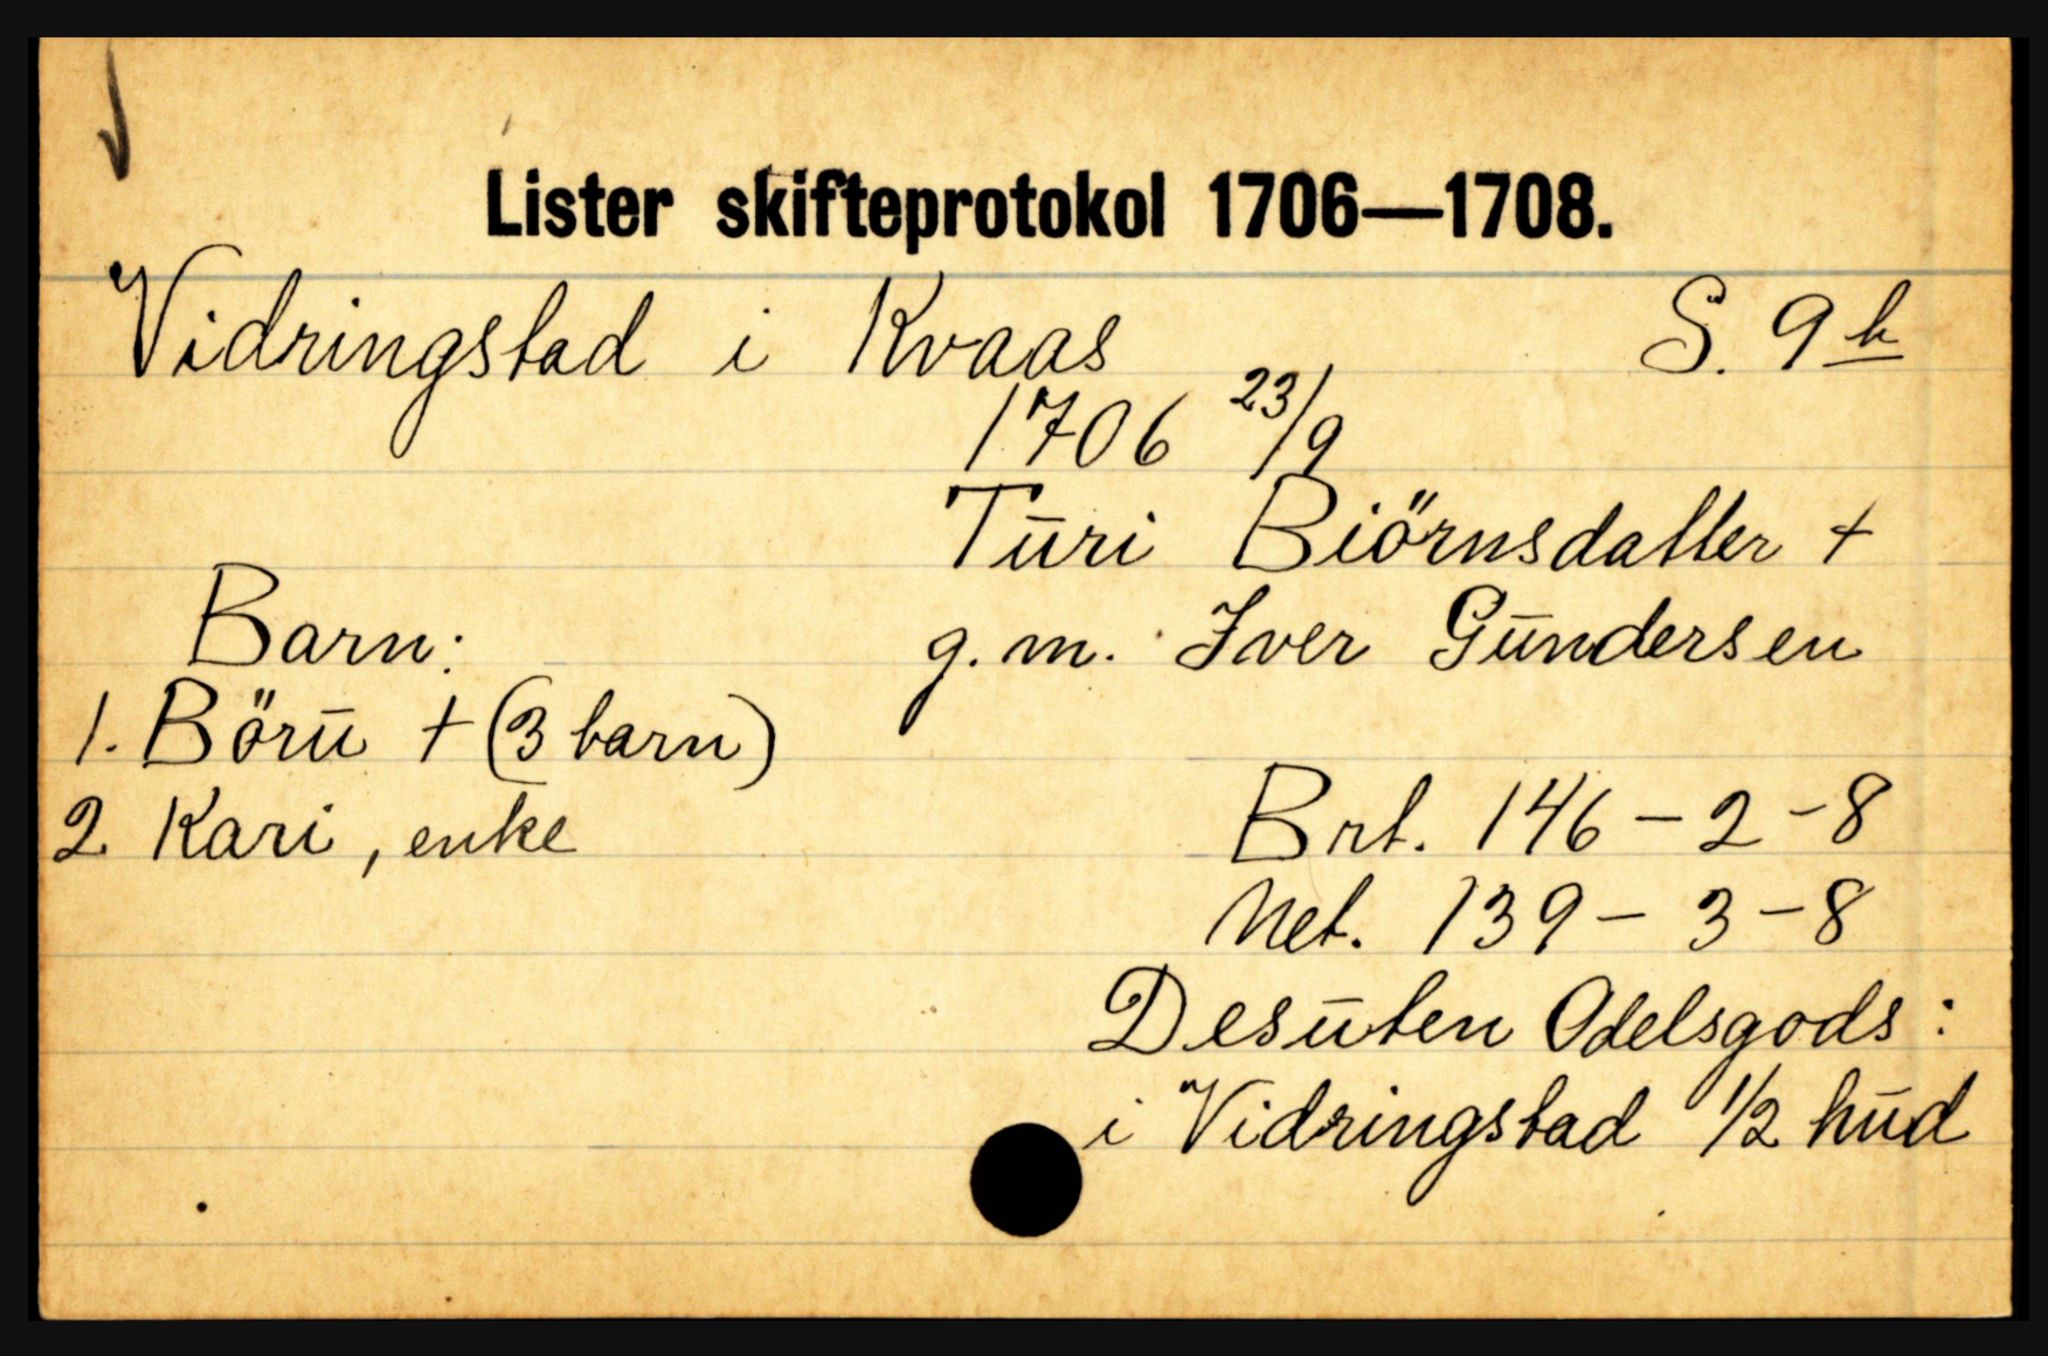 Lister skifteprotokol 1706—1708.
Vidringstad i Kvaas S. 9 b
1706 23/9
Tūri Biörnsdatter +
g. m. Iver Gūndersen
Barn:
1. Börū + (3 barn)
2 Kari, enke
Brt. 146 - 2 - 8
Net. 139 - 3 - 8
Desūten Odelsgods:
i Vidringstad 1/2 hūd